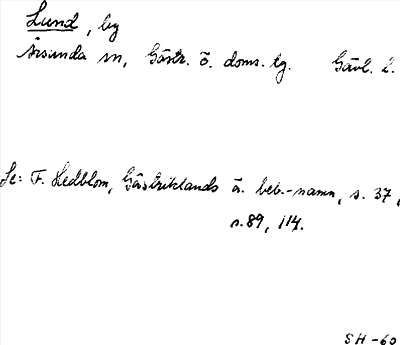 Lund, by
Årsunda sn, Gästr. ö. doms. tg. Gävl. l.
Se: F. Hedblom, Gästriklands ä. beb.-namn, s. 37,
s. 89, 114.
SH -60